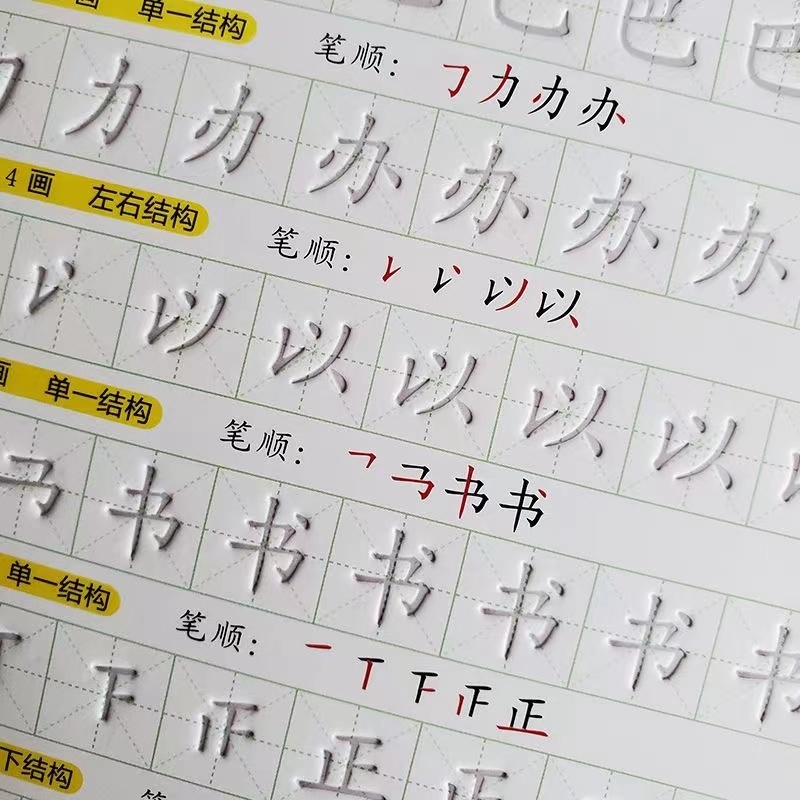 画 单一结构
巴 巴
笔顺： ㇆ 力 办 办
力 办 办 办 办 办
4画 左右结构
笔顺： 以 以
以 以 以 以 以
画 单一结构
笔顺： ㇕ 书 书
书 书 书 书 书 书
单一结构
笔顺： 一 丅 下 正 正
下 正 正
下结构
笔